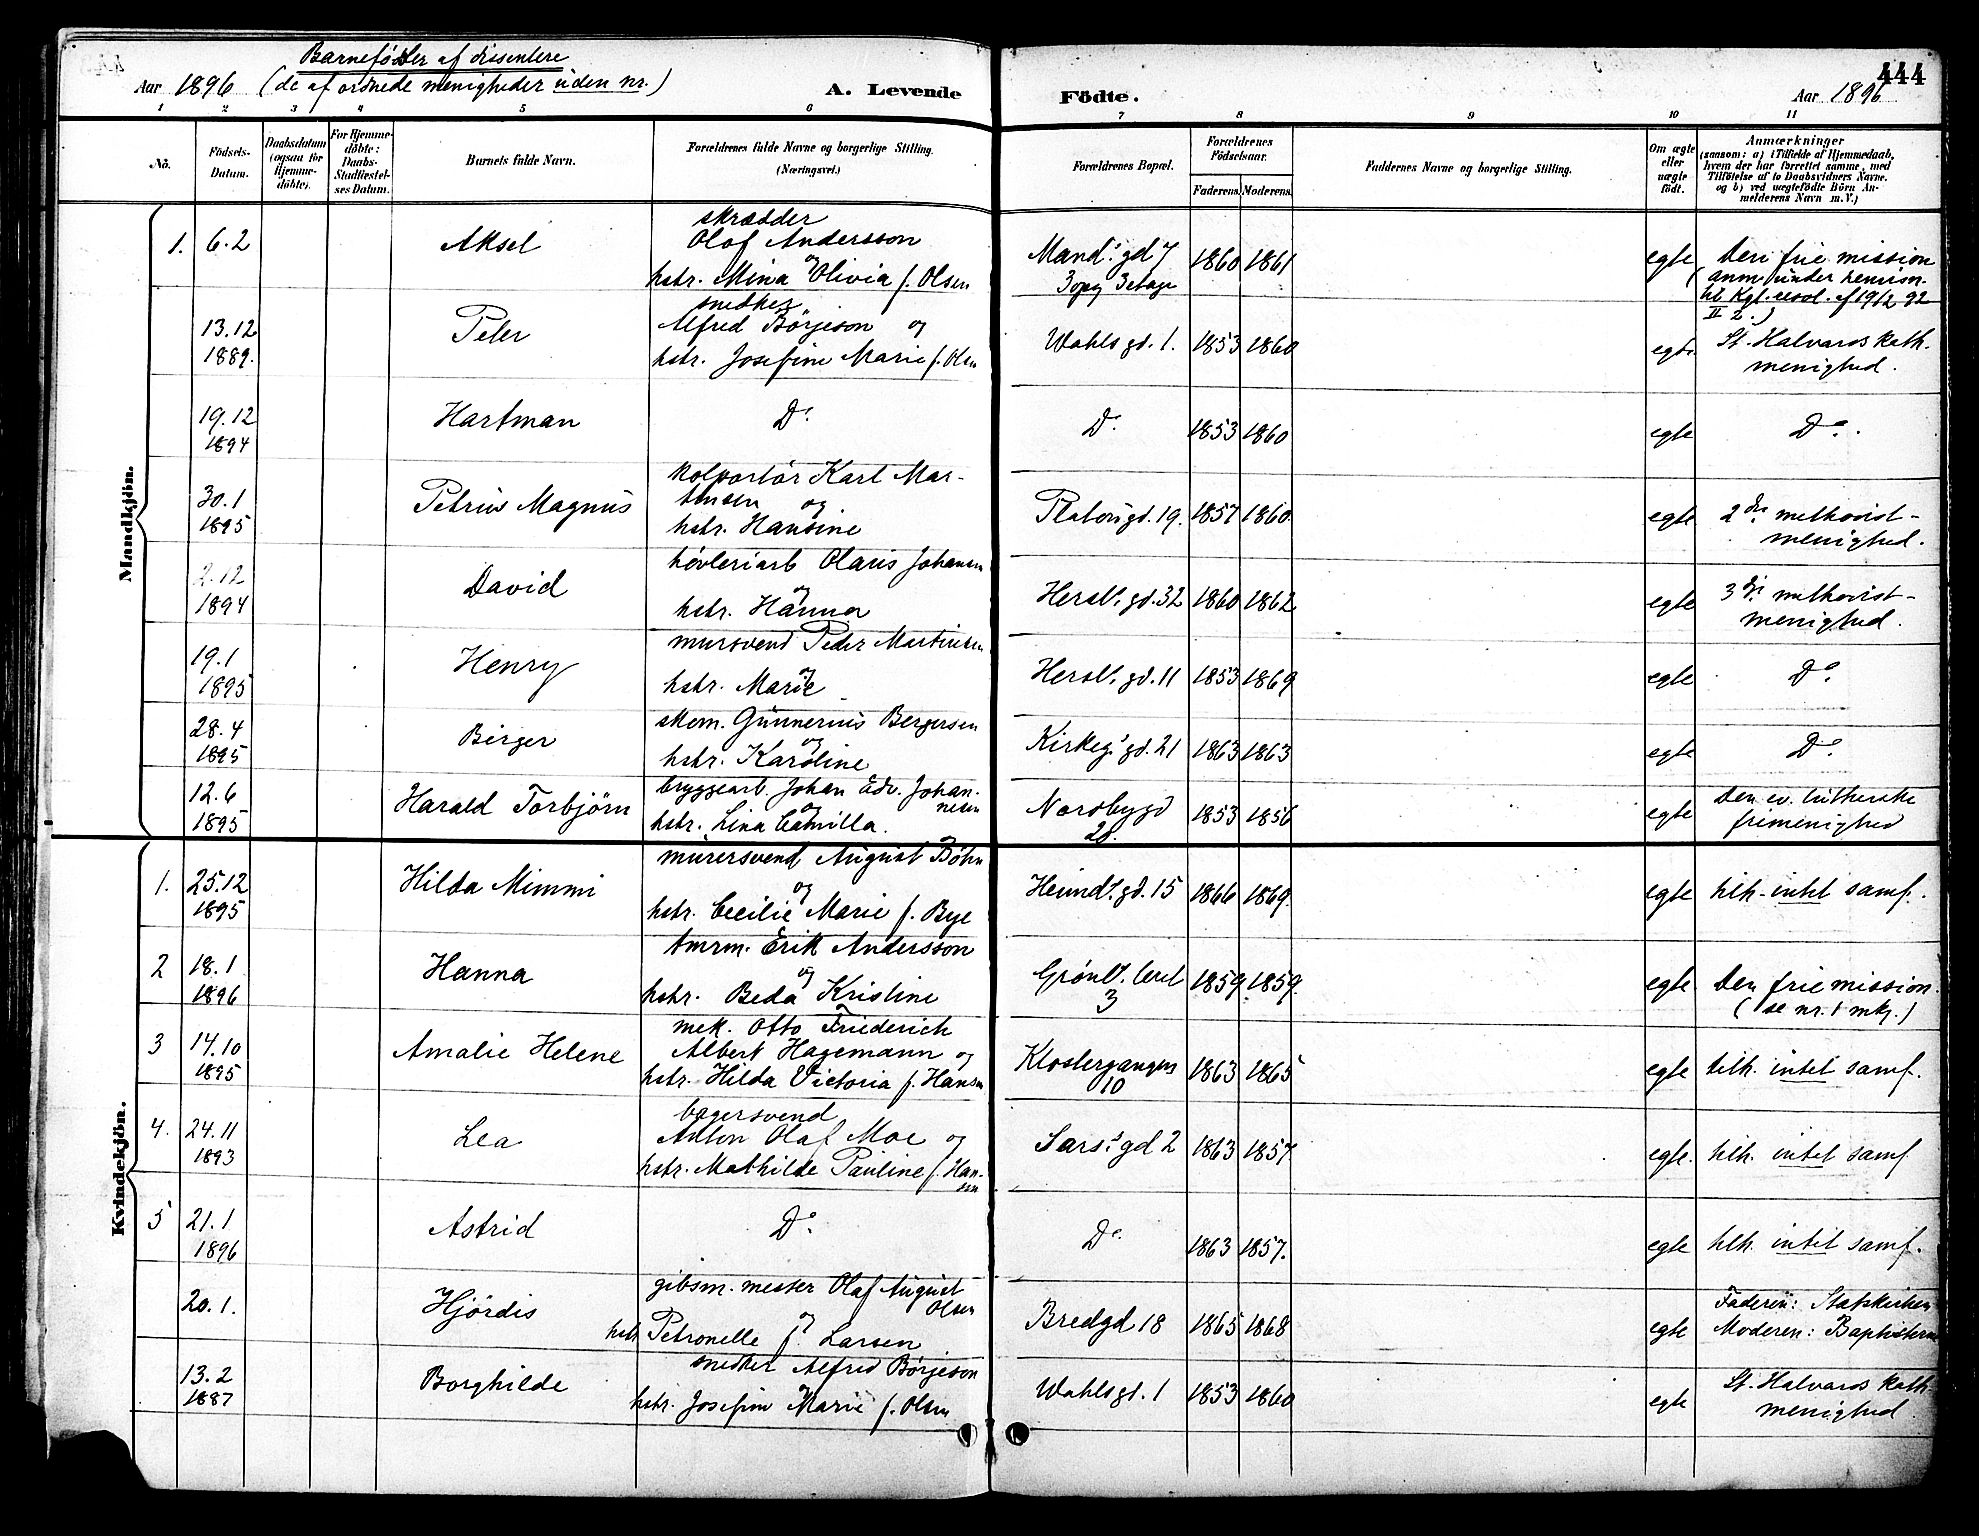 Barnefödsler af dissentere
Aar 1896 (de af ordnede menigheder uden nr.)
A. Levende Födte.
444
Aar 1896
1 2 3 4 5 6 7 8 9 10 11
No.
Födsels-
Datum.
Daabsdatum
(ogsaa for
Hjemme-
döbte).
For Hjemme-
döbte:
Daabs-
Stadfæstel-
ses Datum.
Barnets fulde Navn.
Forældrenes fulde Navne og borgerlige Stilling.
(Næringsvei.)
Forældrenes Bopæl.
Forældrenes
Födselsaar.
Faderens. Moderens.
Faddernes Navne og borgerlige Stilling.
Om ægte
eller
uægte
födt.
Anmærkninger
(saasom: a) i Tilfælde af Hjemmedaab,
hvem der har forrettet samme, med
Tilföielse af to Daabsvidners Navne,
og b) ved uægtefödte Börn An-
melderens Navn m.V.)
Mandkjön.
1. 6.2 Aksel
skrædder
Olaf Andersson
og
hstr. Mina Olivia f. Olsen
Mand.s gd 7
3 opg 3 etage
1860 1861 egte
Den frie mission
(anm. under henvisn.
til Kgl. resol. af 19/2 92
II 2.)
13.12
1889. Peter
snedker
Alfred Börjeson og
hstr. Josefine Marie f. Olsen
Wahlsgd. 1. 1853 1860 egte
St. Halvards kath.
menighed.
19.12
1894 Hartman Do. Do. 1853 1860 egte Do.
30.1
1895 Petrus Magnus
kolportör Karl Mar-
tinsen og
hstr. Hansine
Platousgd. 19. 1857 1860 egte
2den methodist-
menighed.
2.12
1894 David
hövleriarb Olaus Johansen
og
hstr. Hanna
Hersl. gd. 32 1860 1862 egte
3die methodist-
menighed.
19.1
1895 Henry
mursvend Peder Martinsen
og
hstr. Marie
Hersl. gd. 11 1853 1869 egte Do.
28.4
1895 Birger
skom. Gunnerius Bergersen
og
hstr. Karoline
Kirkeg.s gd. 21 1863 1863 egte Do.
12.6
1895 Harald Torbjörn
bryggearb. Johan Edv. Johan-
nesen
og
hstr. Lina Camilla.
Nordbygd
28. 1853 1856 egte
Den ev. lutherske
frimenighed
Kvindekjön.
1. 25.12
1895 Hilda Mimmi
murersvend August Böhn
og
hstr. Cecilie Marie f. Bye
Heimd. gd. 15 1866 1869. egte tilh. intet samf.
2 18.1
1896 Hanna
tmrm. Erik Andersson
og
hstr. Beda Kristine
Grönl. leret
3 1859 1859. egte
Den frie mission.
(se nr. 1 mkj.)
3 14.10
1895 Amalie Helene
mek. Otto Friederich
Albert Hagemann og
hstr. Hilda Victoria f. Hansen
Klostergangen
10 1863 1865 egte tilh. intet samf.
4. 24.11
1893 Lea
bagersvend
Anton Olaf Moe og
hstr. Mathilde Pauline f. Han-
sen
Sars.s gd 2 1863 1857. egte. tilh. intet samf
5 21.1
1896 Astrid Do. Do. 1863 1857. egte tilh. intet samf.
20.1. Hjördis
gibsm. mester Olaf August
Olsen
og
hstr Petronelle f. Larsen
Bredgd 18 1865 1868 egte
Faderen: Statskirken
Moderen: Baptisterne
13.2
1887 Borghilde
snedker Alfred Börjeson
hstr. Josefine Marie f. Olsen
Wahlsgd. 1 1853 1860 egte
St. Halvards kath.
menighed